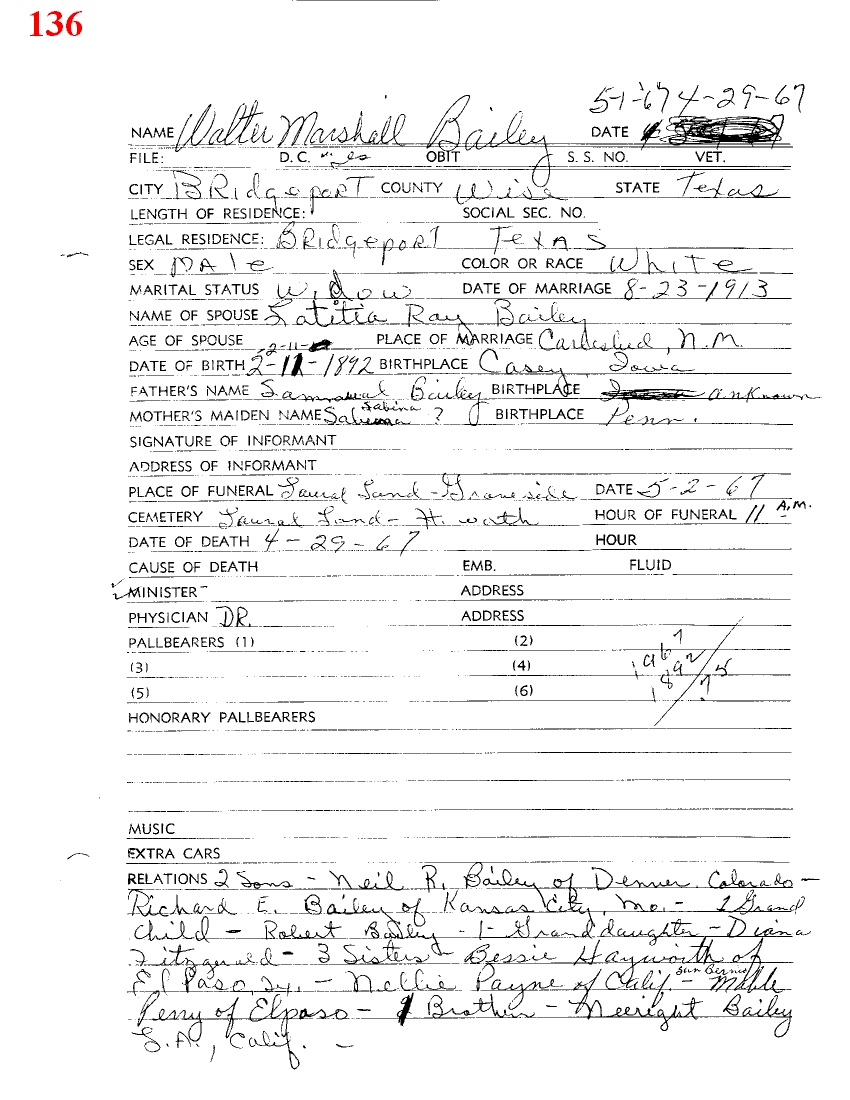 136
5-1-67 4-29-67
NAME Walter Marshall Bailey DATE
FILE: D.C. yes OBIT S. S. NO. VET.
CITY BRidgepoRT COUNTY Wise STATE Texas
LENGTH OF RESIDENCE: SOCIAL SEC. NO.
LEGAL RESIDENCE: BRidgepoRT TexAS
SEX MAle COLOR OR RACE WhiTe
MARITAL STATUS Widow DATE OF MARRIAGE 8-23-1913
NAME OF SPOUSE Latitia Ray Bailey
AGE OF SPOUSE PLACE OF MARRIAGE Carlesbed, N.M.
2-11-
DATE OF BIRTH 2-11-1892 BIRTHPLACE Casey, Iowa
FATHER'S NAME Bailey BIRTHPLACE unKnown
MOTHER'S MAIDEN NAME Sabina ? BIRTHPLACE Penn.
SIGNATURE OF INFORMANT
ADDRESS OF INFORMANT
PLACE OF FUNERAL Laural Land - Graveside DATE 5-2-67
CEMETERY Laural Land - Ft. worth HOUR OF FUNERAL 11 A.M.
DATE OF DEATH 4-29-67 HOUR
CAUSE OF DEATH EMB. FLUID
MINISTER- ADDRESS
PHYSICIAN DR. ADDRESS
PALLBEARERS (1) (2)
1967
(3) (4)
1892
75
(5) (6)
HONORARY PALLBEARERS
MUSIC
EXTRA CARS
RELATIONS 2 Sons - Neil R. Bailey of Denver, Colorado -
Richard E. Bailey of Kansas City, Mo. - 1 Grand
Child - Robert Bailey - 1- Granddaughter - Diana
Fitzgerald - 3 Sisters - Bessie Hayworth of
El Paso Tx. - Nellie Payne of Calif. San Berno - Mable
Perry of Elpaso - 1 Brother - Bailey
L.A., Calif. -